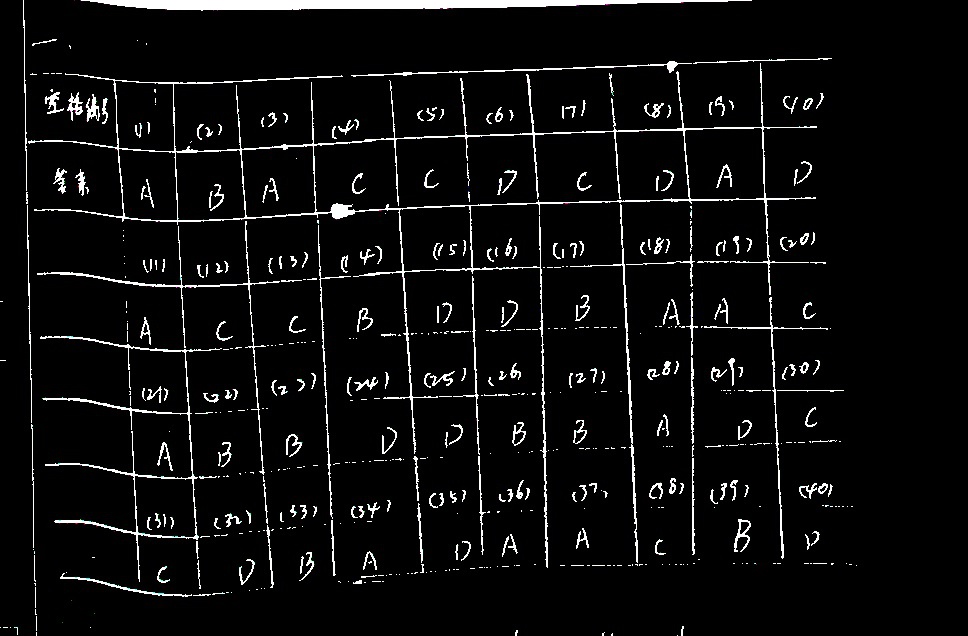 一、
空格编号 (1) (2) (3) (4) (5) (6) (7) (8) (9) (10)
答案 A B A C C D C D A D
(11) (12) (13) (14) (15) (16) (17) (18) (19) (20)
A C C B D D B A A C
(21) (22) (23) (24) (25) (26) (27) (28) (29) (30)
A B B D D B B A D C
(31) (32) (33) (34) (35) (36) (37) (38) (39) (40)
C D B A D A A C B D